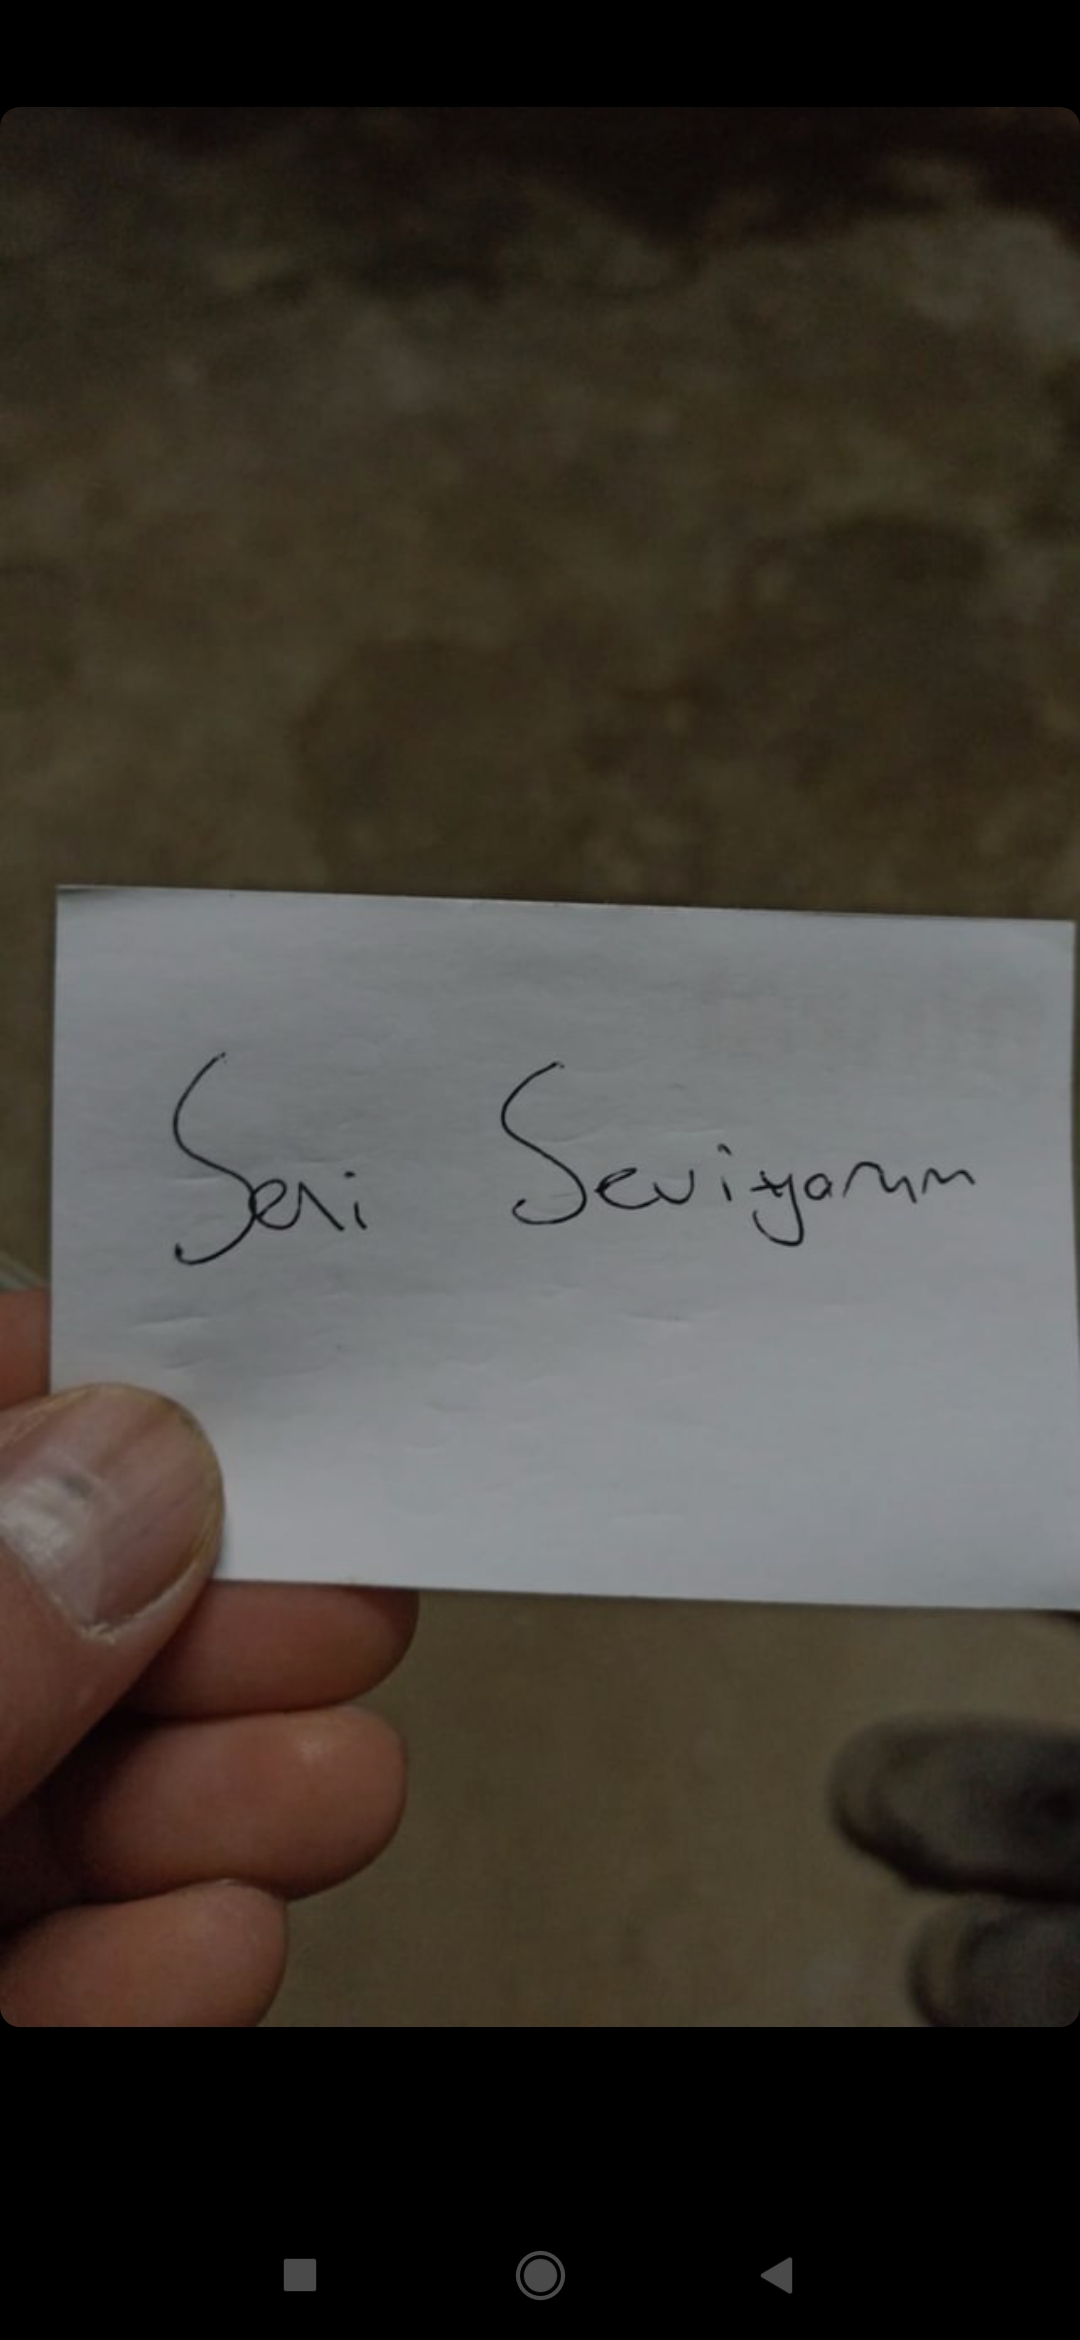 Seni Seviyorum